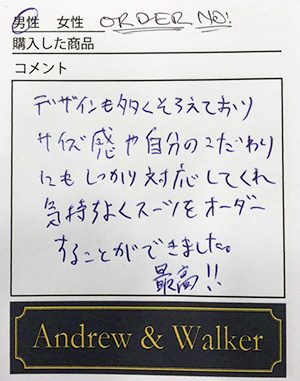 男性 女性 ORDER NO!
購入した商品
コメント
デザインも多くそろえており
サイズ感や自分のこだわり
にもしっかり対応してくれ
気持ちよくスーツをオーダー
することができました。
最高!!
Andrew & Walker